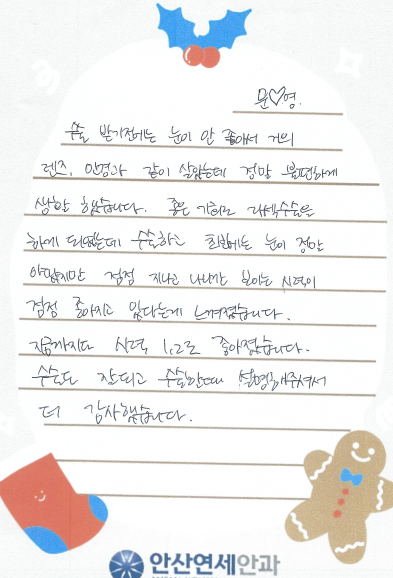 문♡영.
수술 받기전에는 눈이 안 좋아서 거의
렌즈, 안경과 같이 살았는데 정말 불편하게
생활 했었습니다. 좋은 기회로 라섹수술을
하게 되었는데 수술하고 회복에는 눈이 정말
아팠지만 점점 지나고 나니까 보이는 시력이
점점 좋아지고 있다는게 느껴졌습니다.
지금까지다 시력 1.2로 좋아졌습니다.
수술도 잘되고 수술할때 설명해주셔서
더 감사했습니다.
안산연세안과